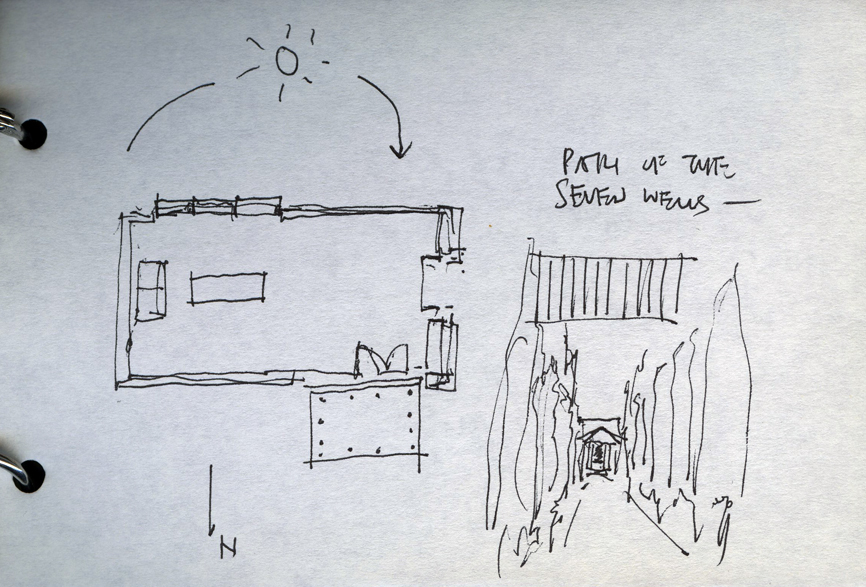 PATH OF THE
SEVEN WELLS —
N